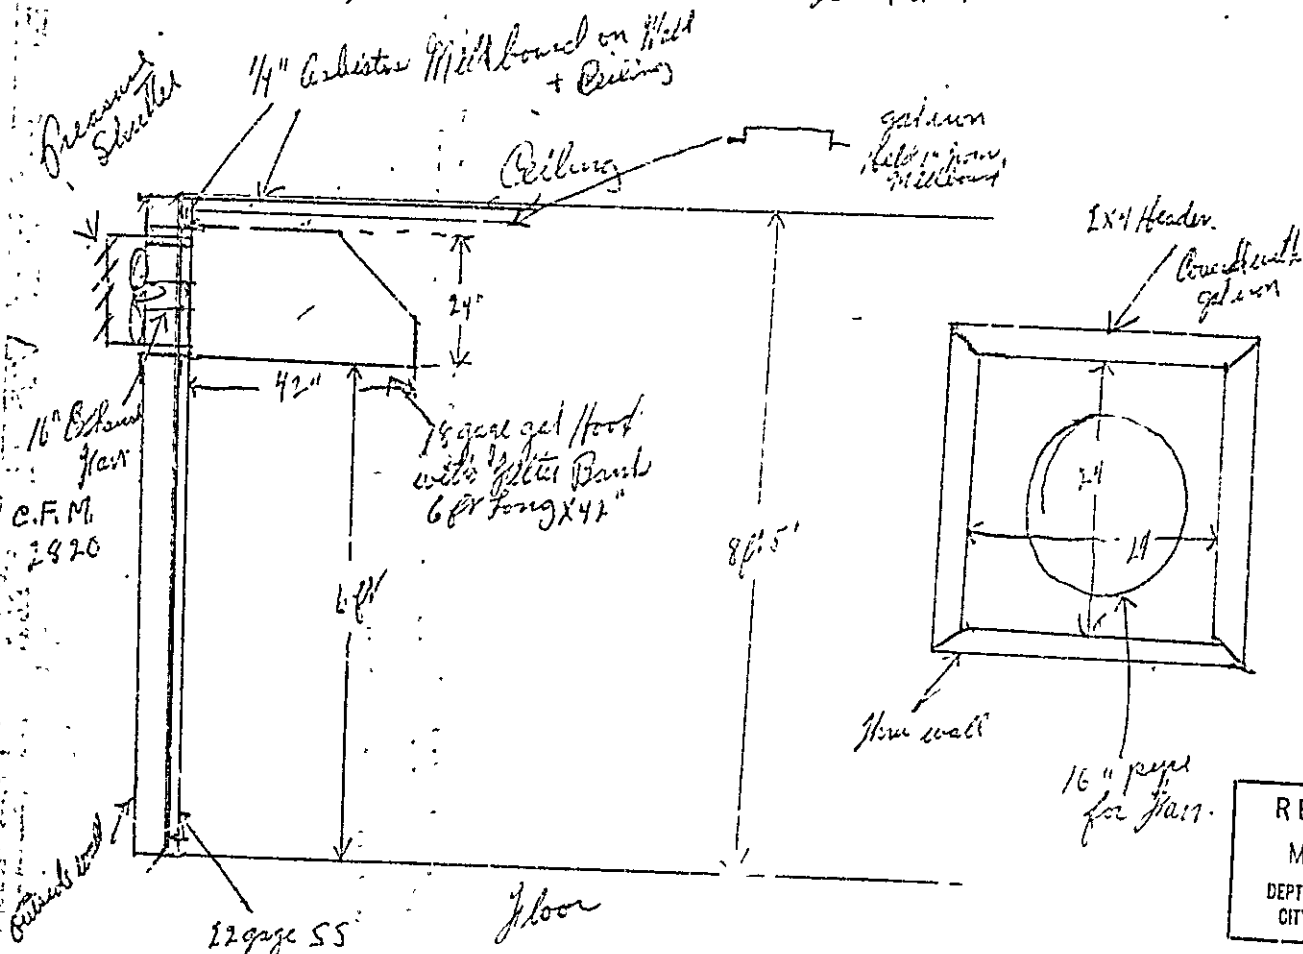 Pressure
Shutter
1/4" Asbestos Millboard on Wall
+ Ceiling
Ceiling
gal iron
Millboard
2x4 Header.
Covered with
gal iron
24"
42"
16" Exhaust
Fan
C.F.M.
2820
18 gage gal Hood
with Filter Bank
6 ft Long x 42"
6 ft
8 ft 5"
24
Thru wall
16" pipe
for Fan.
Outside wall
22 gage SS
Floor
RE
M
DEPT
CIT